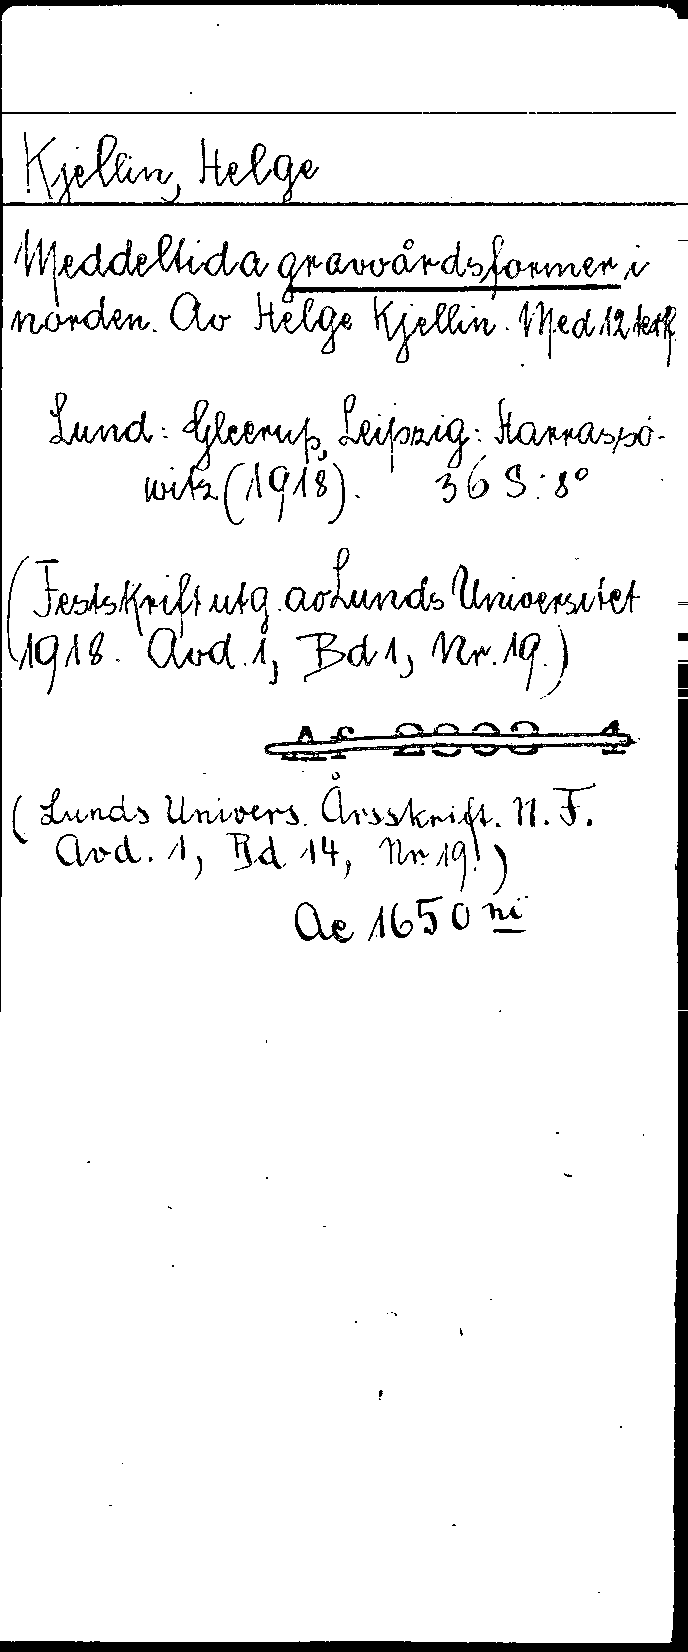 Kjellin, Helge
Meddeltida gravvårdsformer i
norden. Av Helge Kjellin. Med 12 textf.
Lund: Gleerup, Leipzig: Harrasso-
witz (1918). 36 S. 8°
(Festskrift utg. av Lunds Universitet
1918. Avd. 1, Bd 1, Nr. 19.)
(Lunds Univers. Årsskrift. N. F.
Avd. 1, Bd 14, Nr 19.)
Ae 1650 ni